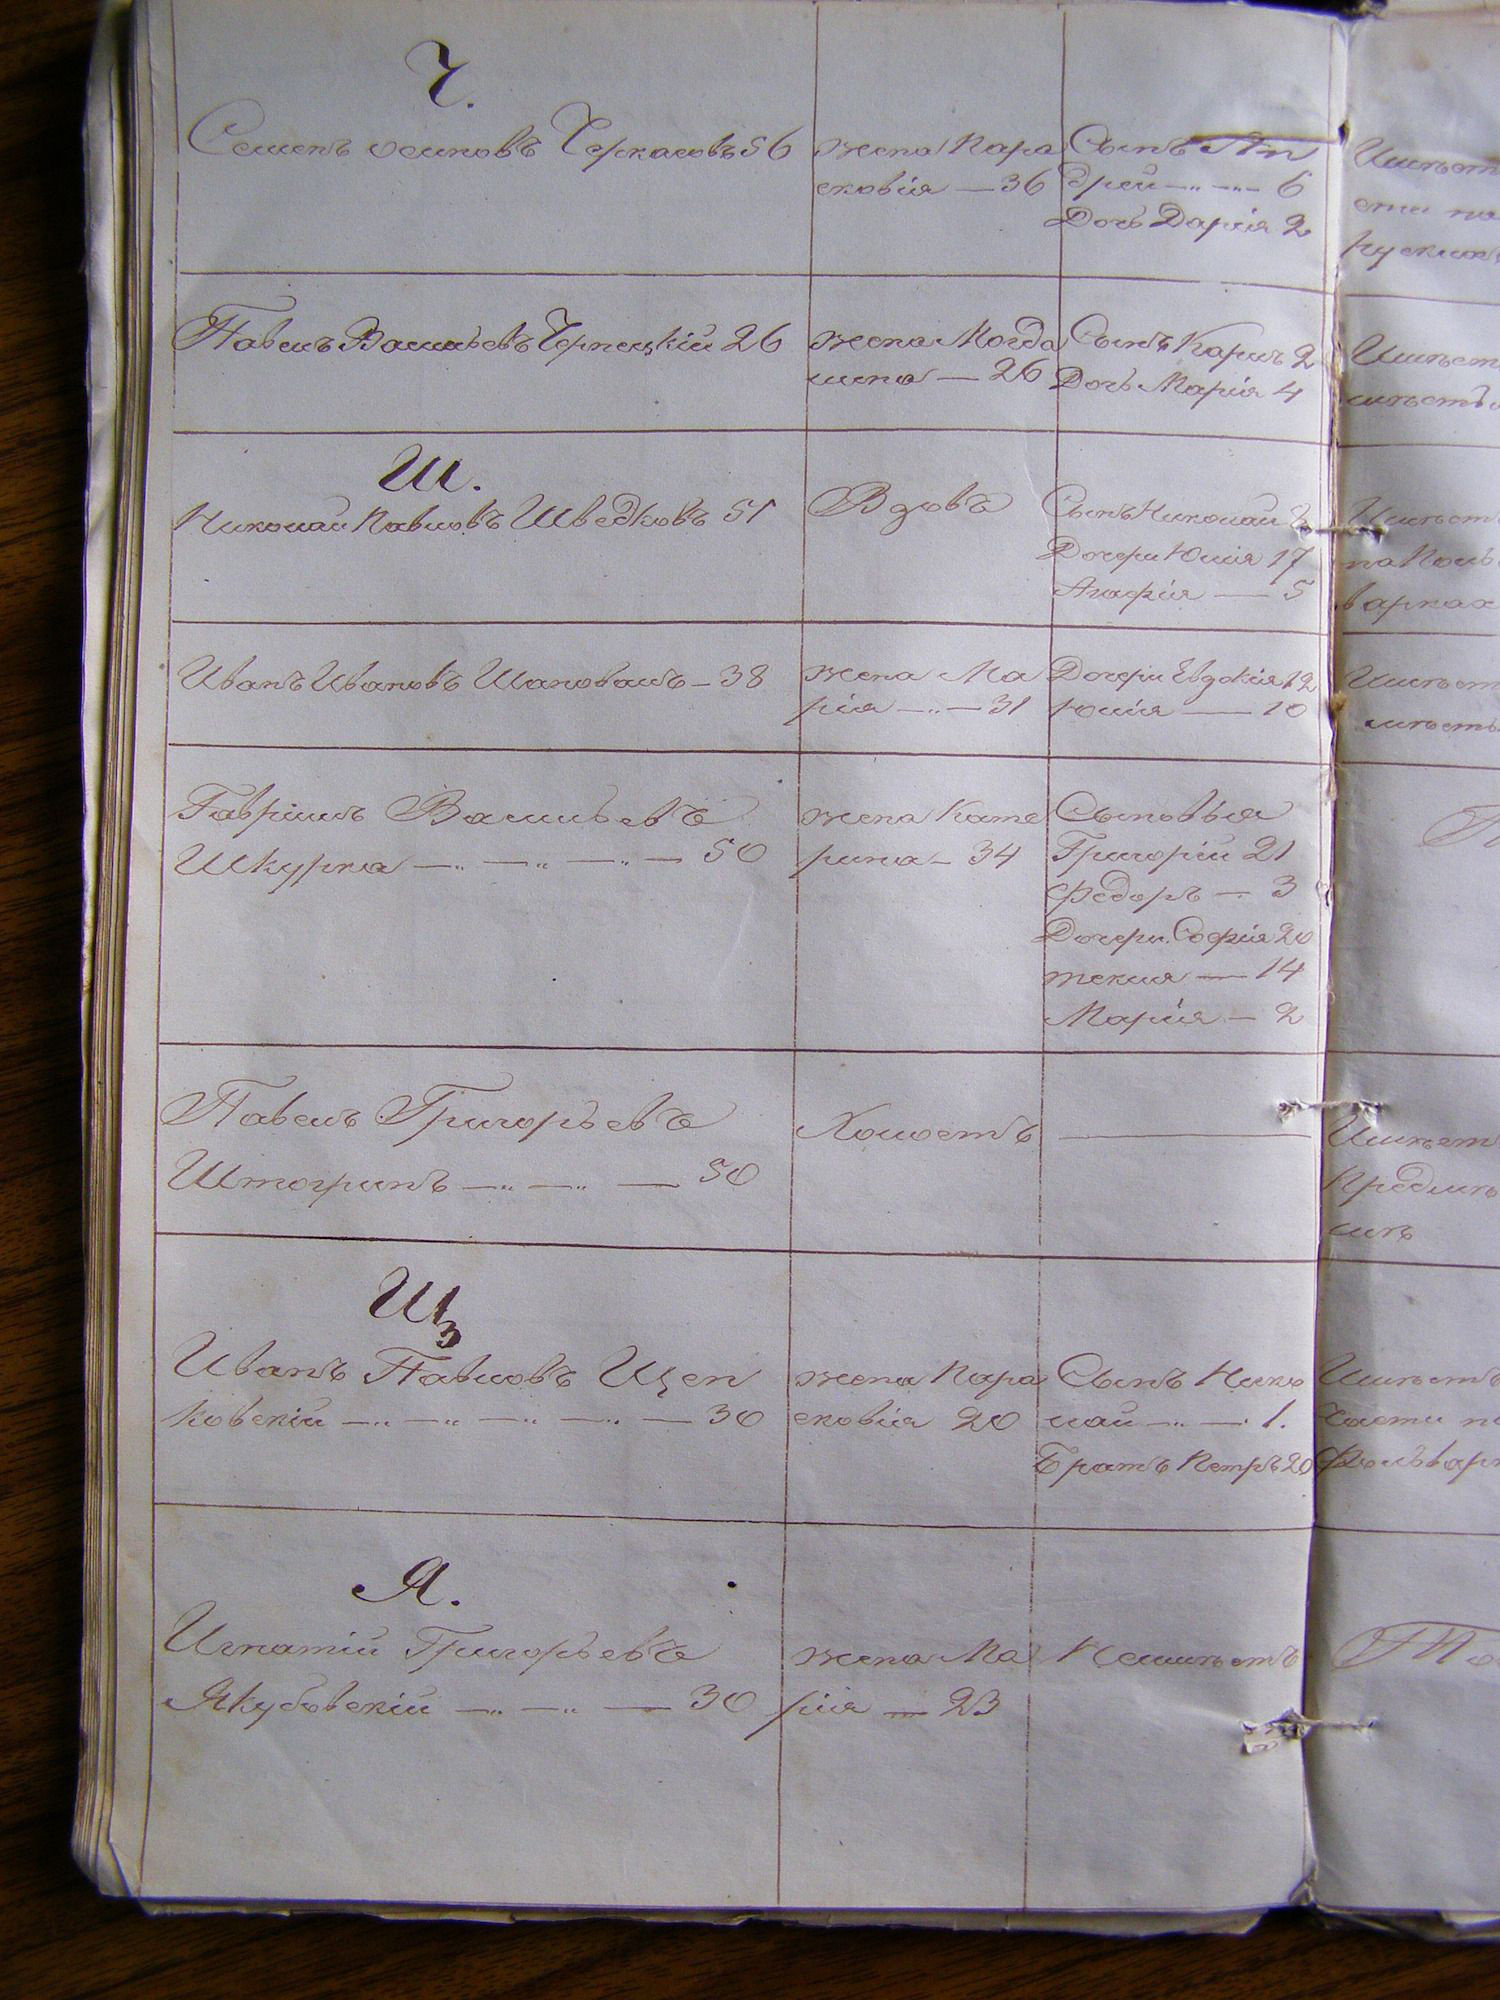 Ч.
Семенъ осиповъ Черкасовъ 56
жена Пара
сковія — 36
Сынъ Ан
дрей — 6
Дочь Дарія 2
Павелъ Васильевъ Чернецкій 26
жена Могда
лина — 26
Сынъ Карлъ 2
Дочь Марія 4
Ш.
Николай Павловъ Шведковъ 51
Вдовъ
Сынъ Николай 2
Дочери Юлія 17
Агафія — 5
Иванъ Ивановъ Шаповалъ — 38
жена Ма
рія — 31
Дочери Евдокія 12
Юлія — 10
Гавріилъ Васильевъ
Шкурка — 50
жена Кате
рина — 34
Сыновья
Григорій 21
Федоръ — 3
Дочери Софія 20
текля — 14
Марія — 2
Павелъ Григорьевъ
Штогринъ — 50
Холостъ
Щ
Иванъ Павловъ Щеп
ковскій — 30
жена Пара
сковія 20
Сынъ Нико
лай — 1.
Братъ Петръ 20
Я.
Игнатій Григорьевъ
Якубовскій — 30
жена Ма
рія — 23
Неимѣетъ